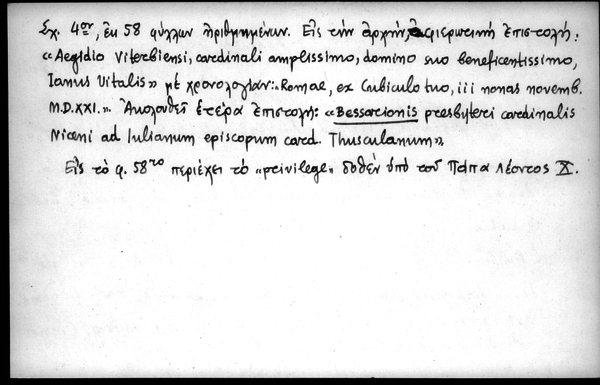 Σχ. 4ον, ἐκ 58 φύλλων ἠριθμημένων. Εἰς τὴν ἀρχήν, ἀφιερωτικὴ ἐπιστολή:
«Aegidio Viterbiensi, cardinali amplissimo, domino suo beneficentissimo,
Ianus Vitalis» μὲ χρονολογίαν: «Romae, ex Cubiculo tuo, iii nonas novemb.
M.D.XXI.». Ἀκολουθεῖ ἑτέρα ἐπιστολή: «Bessarionis presbyteri cardinalis
Niceni ad Iulianum episcopum card. Thusculanum».
Εἰς τὸ φ. 58ro περιέχει τὸ «privilege» δοθὲν ὑπὸ τοῦ Πάπα Λέοντος X.